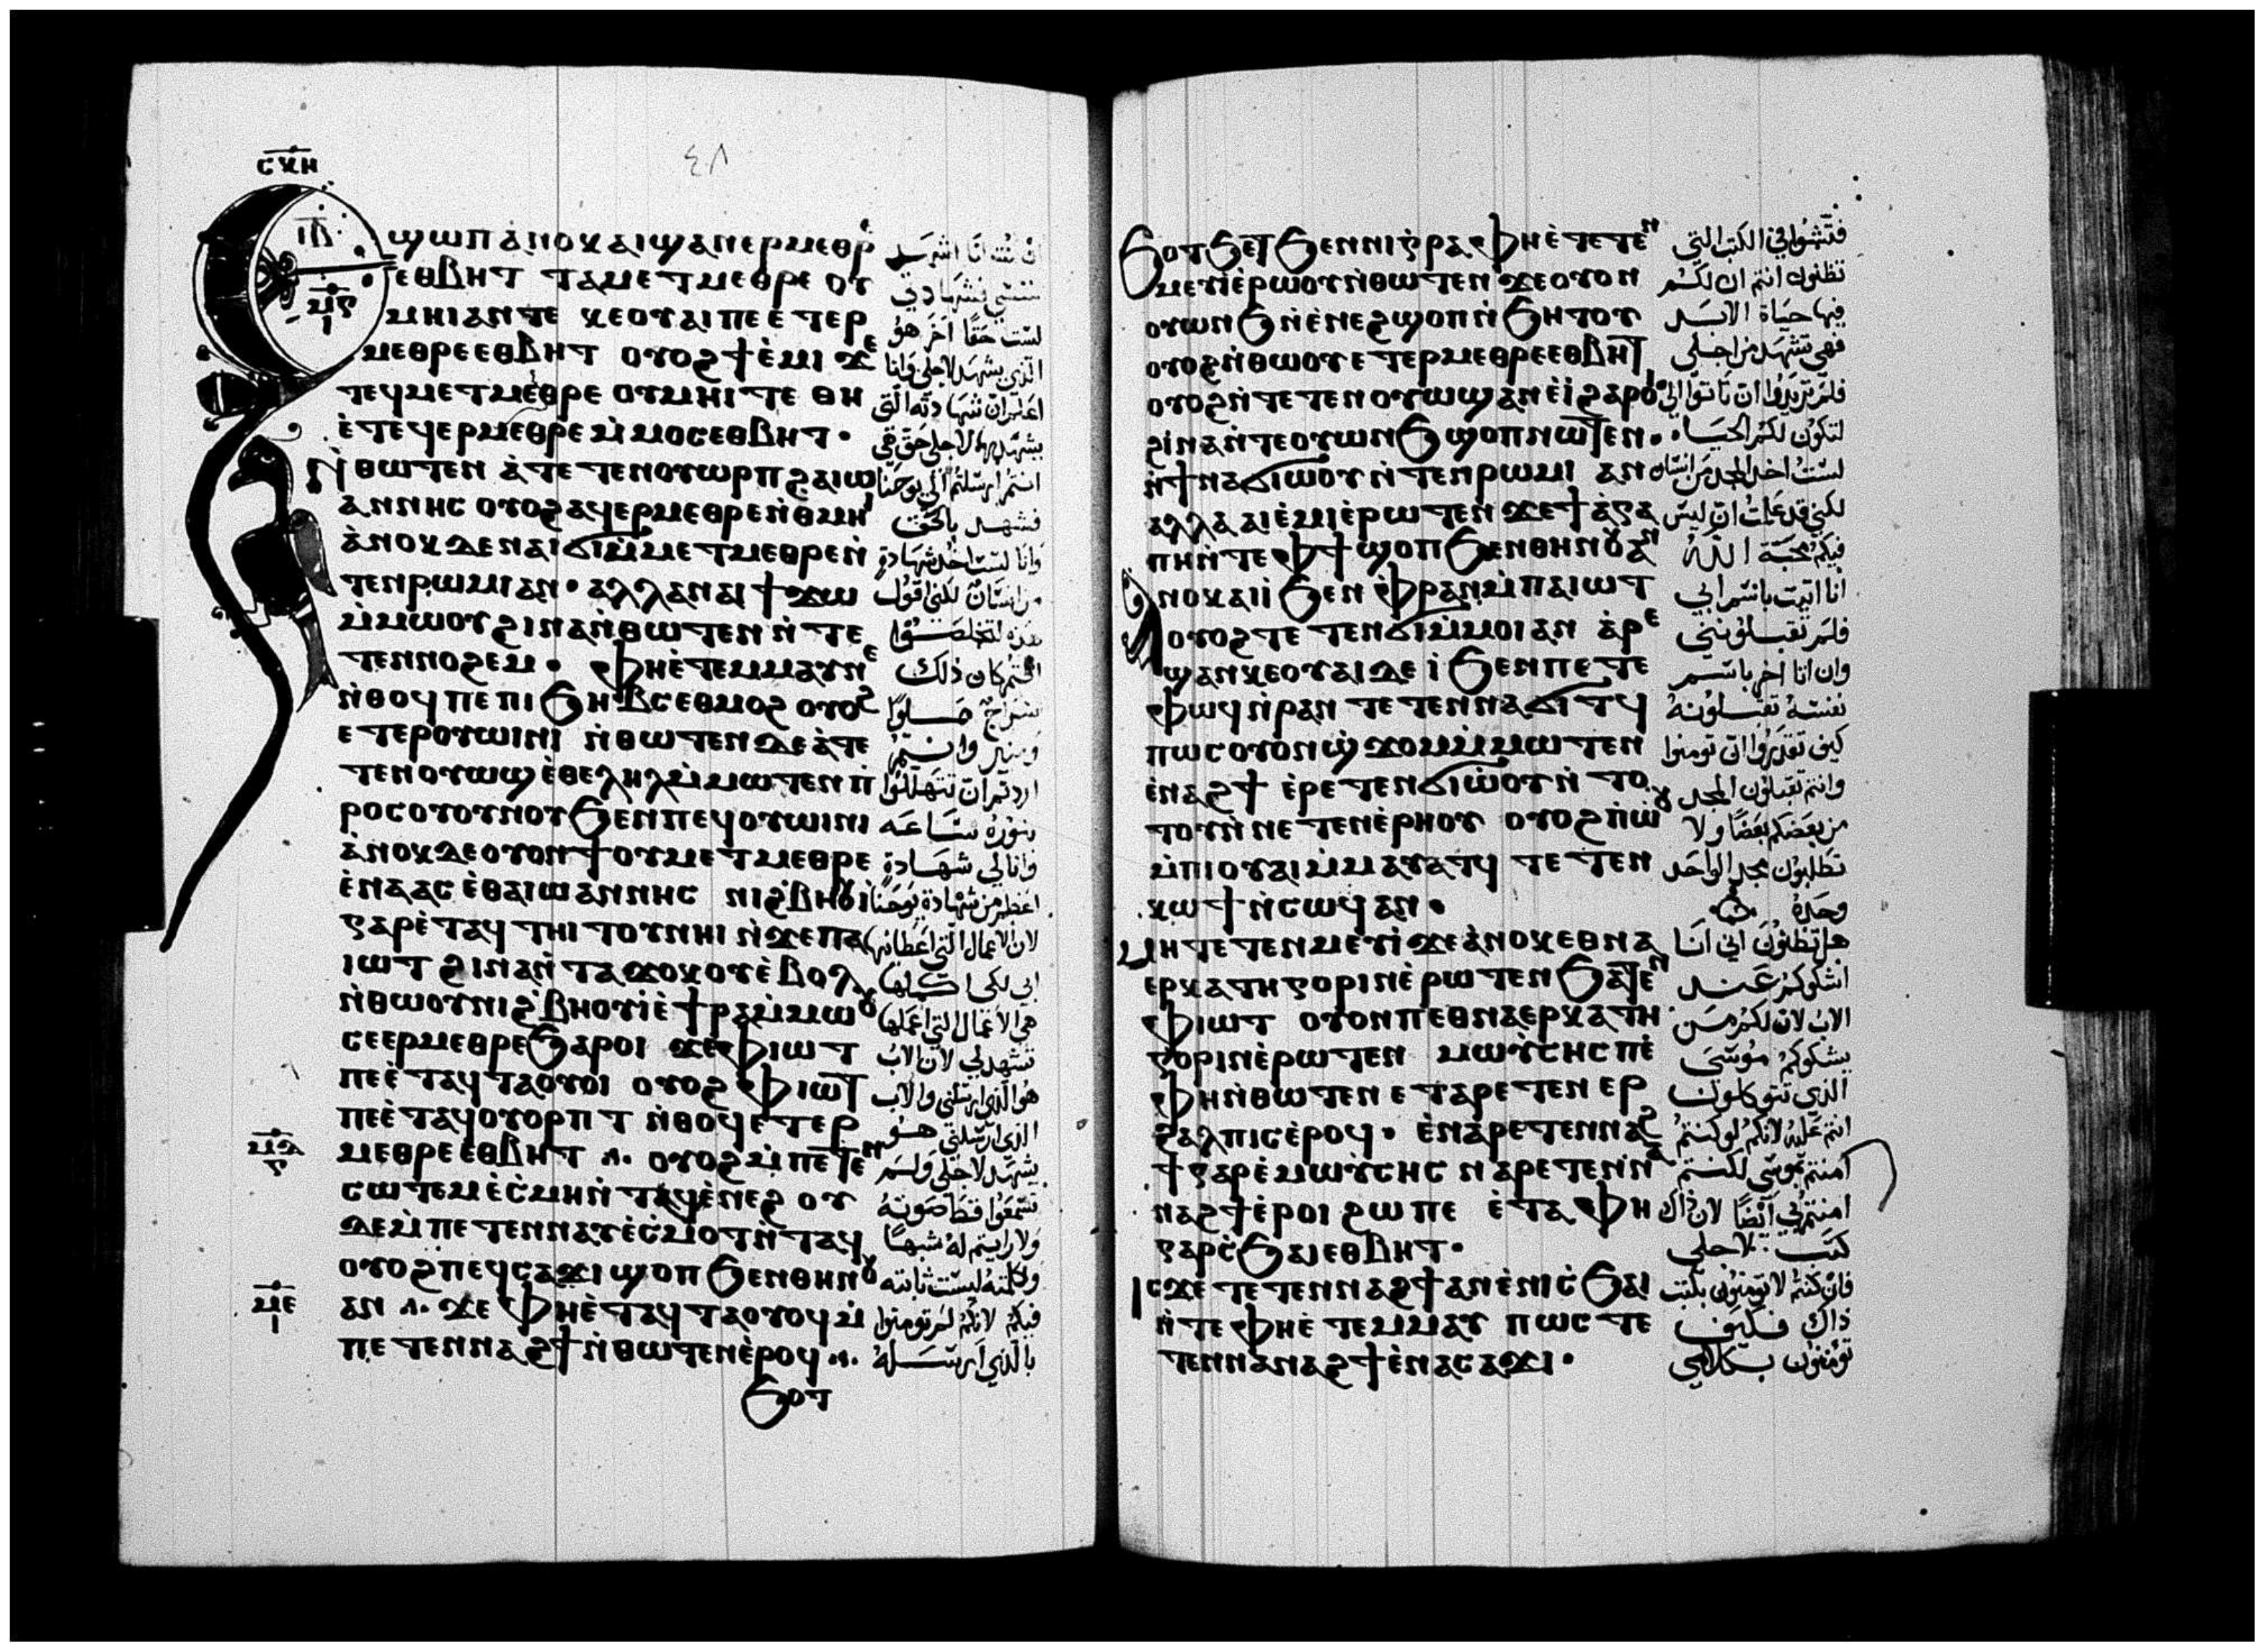 ⲥⲭⲏ
٤٨
ⲓⲇ
ⲙⲋ
ⲓ
ϣⲱⲡ ⲁ̀ⲛⲟⲕ ⲁⲓϣⲁⲛⲉⲣⲙⲉⲑⲣ̀
ⲉⲑⲃⲏⲧ ⲧⲁⲙⲉⲧⲙⲉⲑⲣⲉ ⲟⲩ
ⲙⲏⲓ ⲁⲛ ⲧⲉ ⲕⲉⲟⲩⲁⲓ ⲡⲉ ⲉ̀ⲧⲉⲣ
ⲙⲉⲑⲣⲉ ⲉⲑⲃⲏⲧ ⲟⲩⲟϩ ϯⲉ̀ⲙⲓ ϫⲉ
ⲧⲉϥⲙⲉⲧⲙⲉⲑⲣⲉ ⲟⲩⲙⲏⲓ ⲧⲉ ⲑⲏ
ⲉ̀ⲧⲉϥⲉⲣⲙⲉⲑⲣⲉ ⲙ̀ⲙⲟⲥ ⲉⲑⲃⲏⲧ·
ⲛ̀ⲑⲱⲧⲉⲛ ⲁ̀ⲧⲉⲧⲉⲛⲟⲩⲱⲣⲡ ϩⲁ ⲓⲱ
ⲁⲛⲛⲏⲥ ⲟⲩⲟϩ ⲁϥⲉⲣⲙⲉⲑⲣⲉ ⲛ̀ⲑⲙⲏⲓ
ⲁ̀ⲛⲟⲕ ⲇⲉ ⲛⲁⲓϭⲓ ⲙ̀ⲙⲉⲧⲙⲉⲑⲣⲉ ⲛ̀
ⲧⲉⲛ ⲣⲱⲙⲓ ⲁⲛ· ⲁⲗⲗⲁ ⲛⲁⲓ ϯϫⲱ
ⲙ̀ⲙⲱⲟⲩ ϩⲓⲛⲁ ⲛ̀ⲑⲱⲧⲉⲛ ⲛ̀ⲧⲉ
ⲧⲉⲛⲛⲟϩⲉⲙ· ⲫⲏ ⲉ̀ⲧⲉⲙⲙⲁⲩ ⲛⲉ
ⲛ̀ⲑⲟϥ ⲡⲉ ⲡⲓϧⲏⲃⲥ ⲉⲑⲙⲟϩ ⲟⲩⲟϩ
ⲉⲧⲉⲣⲟⲩⲱⲓⲛⲓ ⲛ̀ⲑⲱⲧⲉⲛ ⲇⲉ ⲁ̀ⲧⲉ
ⲧⲉⲛⲟⲩⲱϣ ⲉ̀ⲑⲉⲗⲏⲗ ⲙ̀ⲙⲱⲧⲉⲛ ⲡ̀
ⲣⲟⲥ ⲟⲩⲟⲩⲛⲟⲩ ϧⲉⲛ ⲡⲉϥⲟⲩⲱⲓⲛⲓ
ⲁ̀ⲛⲟⲕ ⲇⲉ ⲟⲩⲟⲛϯ ⲟⲩⲙⲉⲧⲙⲉⲑⲣⲉ
ⲉ̀ⲛⲁⲁⲥ ⲉ̀ⲑⲁ ⲓⲱⲁⲛⲛⲏⲥ ⲛⲓϩ̀ⲃⲏⲟⲩⲓ̀
ⲅⲁⲣ ⲉ̀ⲧⲁϥⲧⲏⲓⲧⲟⲩ ⲛⲏⲓ ⲛ̀ϫⲉ ⲡⲁ
ⲓⲱⲧ ϩⲓⲛⲁ ⲛ̀ⲧⲁϫⲟⲕⲟⲩ ⲉ̀ⲃⲟⲗ
ⲛ̀ⲑⲱⲟⲩ ⲛⲓϩ̀ⲃⲏⲟⲩⲓ̀ ⲉ̀ϯⲣⲁ ⲙ̀ⲙⲱⲟⲩ
ⲥⲉⲉⲣⲙⲉⲑⲣⲉ ϧⲁⲣⲟⲓ ϫⲉ ⲫⲓⲱⲧ
ⲡⲉ ⲉ̀ⲧⲁϥⲧⲁⲟⲩⲟⲓ ⲟⲩⲟϩ ⲫⲓⲱⲧ
ⲡⲉ ⲉ̀ⲧⲁϥⲟⲩⲟⲣⲡⲧ ⲛ̀ⲑⲟϥ ⲉⲧⲉⲣ
ⲙⲉⲑⲣⲉ ⲉ̀ⲑⲃⲏⲧ ⲟⲩⲟϩ ⲙ̀ⲡⲉⲧⲉⲛ
ⲥⲱⲧⲉⲙ ⲉ̀ⲥ̀ⲙⲏ ⲛ̀ⲧⲁϥ ⲉ̀ⲛⲉϩ ⲟⲩ
ⲇⲉ ⲙ̀ⲡⲉⲧⲉⲛⲛⲁⲩ ⲉ̀ⲥ̀ⲙⲟⲧ ⲛ̀ⲧⲁϥ
ⲟⲩⲟϩ ⲡⲉϥⲥⲁϫⲓ ϣⲟⲡ ϧⲉⲛ ⲑⲏⲛⲟⲩ
ⲁⲛ ϫⲉ ⲫⲏ ⲉ̀ⲧⲁϥⲧⲁⲟⲩⲟϥ ⲙ̀
ⲡⲉⲧⲉⲛⲛⲁϩϯ ⲛ̀ⲑⲱⲧⲉⲛ ⲉ̀ⲣⲟϥ
ϧⲟⲧ
ⲙⲉ
ⲓ
ان كنت انا اشهد
لنفسي فشهادتي
ليست حقا اخر هو
الذي يشهد لاجلي وانا
اعلم ان شهادته التي
يشهد بها لاجلي حق هي
انتم ارسلتم الي يوحنا
فشهد بالحق
وانا لست اخذ شهادة
من انسان لكني اقول
هذه لتخلصوا
انتم كان ذلك
سراج مملوا
ومنير وانتم
اردتم ان تتهللوا
بنوره ساعة
وانا لي شهادة
اعظم من شهادة يوحنا
لان الاعمال التي اعطانيها
ابي لكي اكملها
هي الاعمال التي اعملها
تشهد لي لان الاب
هو الذي ارسلني والاب
الذي ارسلني هو
يشهد لاجلي ولم
تسمعوا قط صوته
ولا رايتم له شبها
وكلمته ليست ثابته
فيكم لانكم لم تومنوا
بالذي ارسله
ϧⲟⲧϧⲉⲧ ϧⲉⲛ ⲛⲓⲅⲣⲁⲫⲏ ⲉ̀ⲧⲉⲧⲉⲛ
ⲙⲉⲩⲓ̀ ⲉ̀ⲣⲱⲟⲩ ⲛ̀ⲑⲱⲧⲉⲛ ϫⲉ ⲟⲩⲟⲛ
ⲟⲩⲱⲛϧ ⲛ̀ⲉ̀ⲛⲉϩ ϣⲟⲡ ⲛ̀ϧⲏⲧⲟⲩ
ⲟⲩⲟϩ ⲛ̀ⲑⲱⲟⲩ ⲉⲧⲉⲣⲙⲉⲑⲣⲉ ⲉⲑⲃⲏⲧ
ⲟⲩⲟϩ ⲛ̀ⲧⲉⲧⲉⲛⲟⲩⲱϣ ⲁⲛ ⲉ̀ⲓ̀ ϩⲁⲣⲟⲓ
ϩⲓⲛⲁ ⲛ̀ⲧⲉ ⲟⲩⲱⲛϧ ϣⲟⲡ ⲛⲱⲧⲉⲛ·
ⲛ̀ϯⲛⲁϭⲓⲱⲟⲩ ⲛ̀ⲧⲉⲛ ⲣⲱⲙⲓ ⲁⲛ
ⲁⲗⲗⲁ ⲁⲓⲉ̀ⲙⲓ ⲉ̀ⲣⲱⲧⲉⲛ ϫⲉ ϯⲁ̀ⲅⲁ
ⲡⲏ ⲛ̀ⲧⲉ ⲫϯ ϣⲟⲡ ϧⲉⲛ ⲑⲏⲛⲟⲩ ⲁⲛ
ⲁⲛⲟⲕ ⲁⲓⲓ̀ ϧⲉⲛ ⲫ̀ⲣⲁⲛ ⲙ̀ⲡⲁⲓⲱⲧ
ⲟⲩⲟϩ ⲧⲉⲧⲉⲛϭⲓ ⲙ̀ⲙⲟⲓ ⲁⲛ ⲁ̀ⲣⲉ
ϣⲁⲛ ⲕⲉⲟⲩⲁⲓ ⲇⲉ ⲓ̀ ϧⲉⲛ ⲡⲉⲧⲉ
ⲫⲱϥ ⲛ̀ⲣⲁⲛ ⲧⲉⲧⲉⲛⲛⲁϭⲓⲧϥ
ⲡⲱⲥ ⲟⲩⲟⲛϣ̀ϫⲟⲙ ⲙ̀ⲙⲱⲧⲉⲛ
ⲉ̀ⲛⲁϩϯ ⲉ̀ⲣⲉⲧⲉⲛϭⲓⲱ̀ⲟⲩ ⲛ̀ⲧⲟ
ⲧⲟⲩ ⲛ̀ⲛⲉⲧⲉⲛⲉ̀ⲣⲏⲟⲩ ⲟⲩⲟϩ ⲡ̀ⲱⲟⲩ
ⲙ̀ⲡⲓⲟⲩⲁⲓ ⲙ̀ⲙⲁⲩⲁⲧϥ ⲧⲉⲧⲉⲛ
ⲕⲱϯ ⲛ̀ⲥⲱϥ ⲁⲛ·
ⲙⲏ ⲧⲉⲧⲉⲛⲙⲉⲩⲓ̀ ϫⲉ ⲁ̀ⲛⲟⲕ ⲉⲑⲛⲁ
ⲉⲣⲕⲁⲧⲏⲅⲟⲣⲓⲛ ⲉ̀ⲣⲱⲧⲉⲛ ϧⲁⲧⲉⲛ
ⲫⲓⲱⲧ ⲟⲩⲟⲛ ⲡⲉⲑⲛⲁⲉⲣⲕⲁⲧⲏ
ⲅⲟⲣⲓⲛ ⲉ̀ⲣⲱⲧⲉⲛ ⲙⲱⲩ̀ⲥⲏⲥ ⲡⲉ̀
ⲫⲏ ⲛ̀ⲑⲱⲧⲉⲛ ⲉⲧⲁⲣⲉⲧⲉⲛⲉⲣ
ϩⲉⲗⲡⲓⲥ ⲉ̀ⲣⲟϥ· ⲉ̀ⲛⲁⲣⲉⲧⲉⲛⲛⲁϩ
ϯ ⲅⲁⲣ ⲉ̀ⲙⲱⲩ̀ⲥⲏⲥ ⲛⲁⲣⲉⲧⲉⲛⲛ̀ⲁ
ⲛⲁϩϯ ⲉ̀ⲣⲟⲓ ϩⲱ ⲡⲉ ⲉ̀ⲧⲁ ⲫⲏ
ⲅⲁⲣ ⲥ̀ϧⲁⲓ ⲉⲑⲃⲏⲧ·
ⲓⲥϫⲉ ⲧⲉⲧⲉⲛⲛⲁϩϯ ⲁⲛ ⲉ̀ⲛⲓⲥ̀ϧⲁⲓ
ⲛ̀ⲧⲉ ⲫⲏ ⲉ̀ⲧⲉⲙⲙⲁⲩ ⲡⲱⲥ ⲧⲉ
ⲧⲉⲛⲛⲁⲛⲁϩϯ ⲉ̀ⲛⲁⲥⲁϫⲓ·
فتشوا في الكتب التي
تظنون انتم ان لكم
فيها حياة الابد
فهي تشهد من اجلي
فلم تريدوا ان تاتوا الي
لتكون لكم الحياة
لست اخذ المجد من انسان
لكني قد علمت ان ليس
فيكم محبة الله
انا اتيت باسم ابي
فلم تقبلونني
وان اتا اخر باسم
نفسه تقبلونه
كيف تقدروا ان تومنوا
وانتم تقبلون المجد
من بعضكم بعضا ولا
تطلبون مجد الواحد
وحده
هل تظنون اني انا
اشكوكم عند
الاب لان لكم من
يشكوكم موسى
الذي تتوكلون
انتم عليه لانكم لو كنتم
امنتم بموسى لكنتم
امنتم بي ايضا لان ذاك
كتب لاجلي
فان كنتم لا تومنون بكتب
ذاك فكيف
تومنون بكلامي